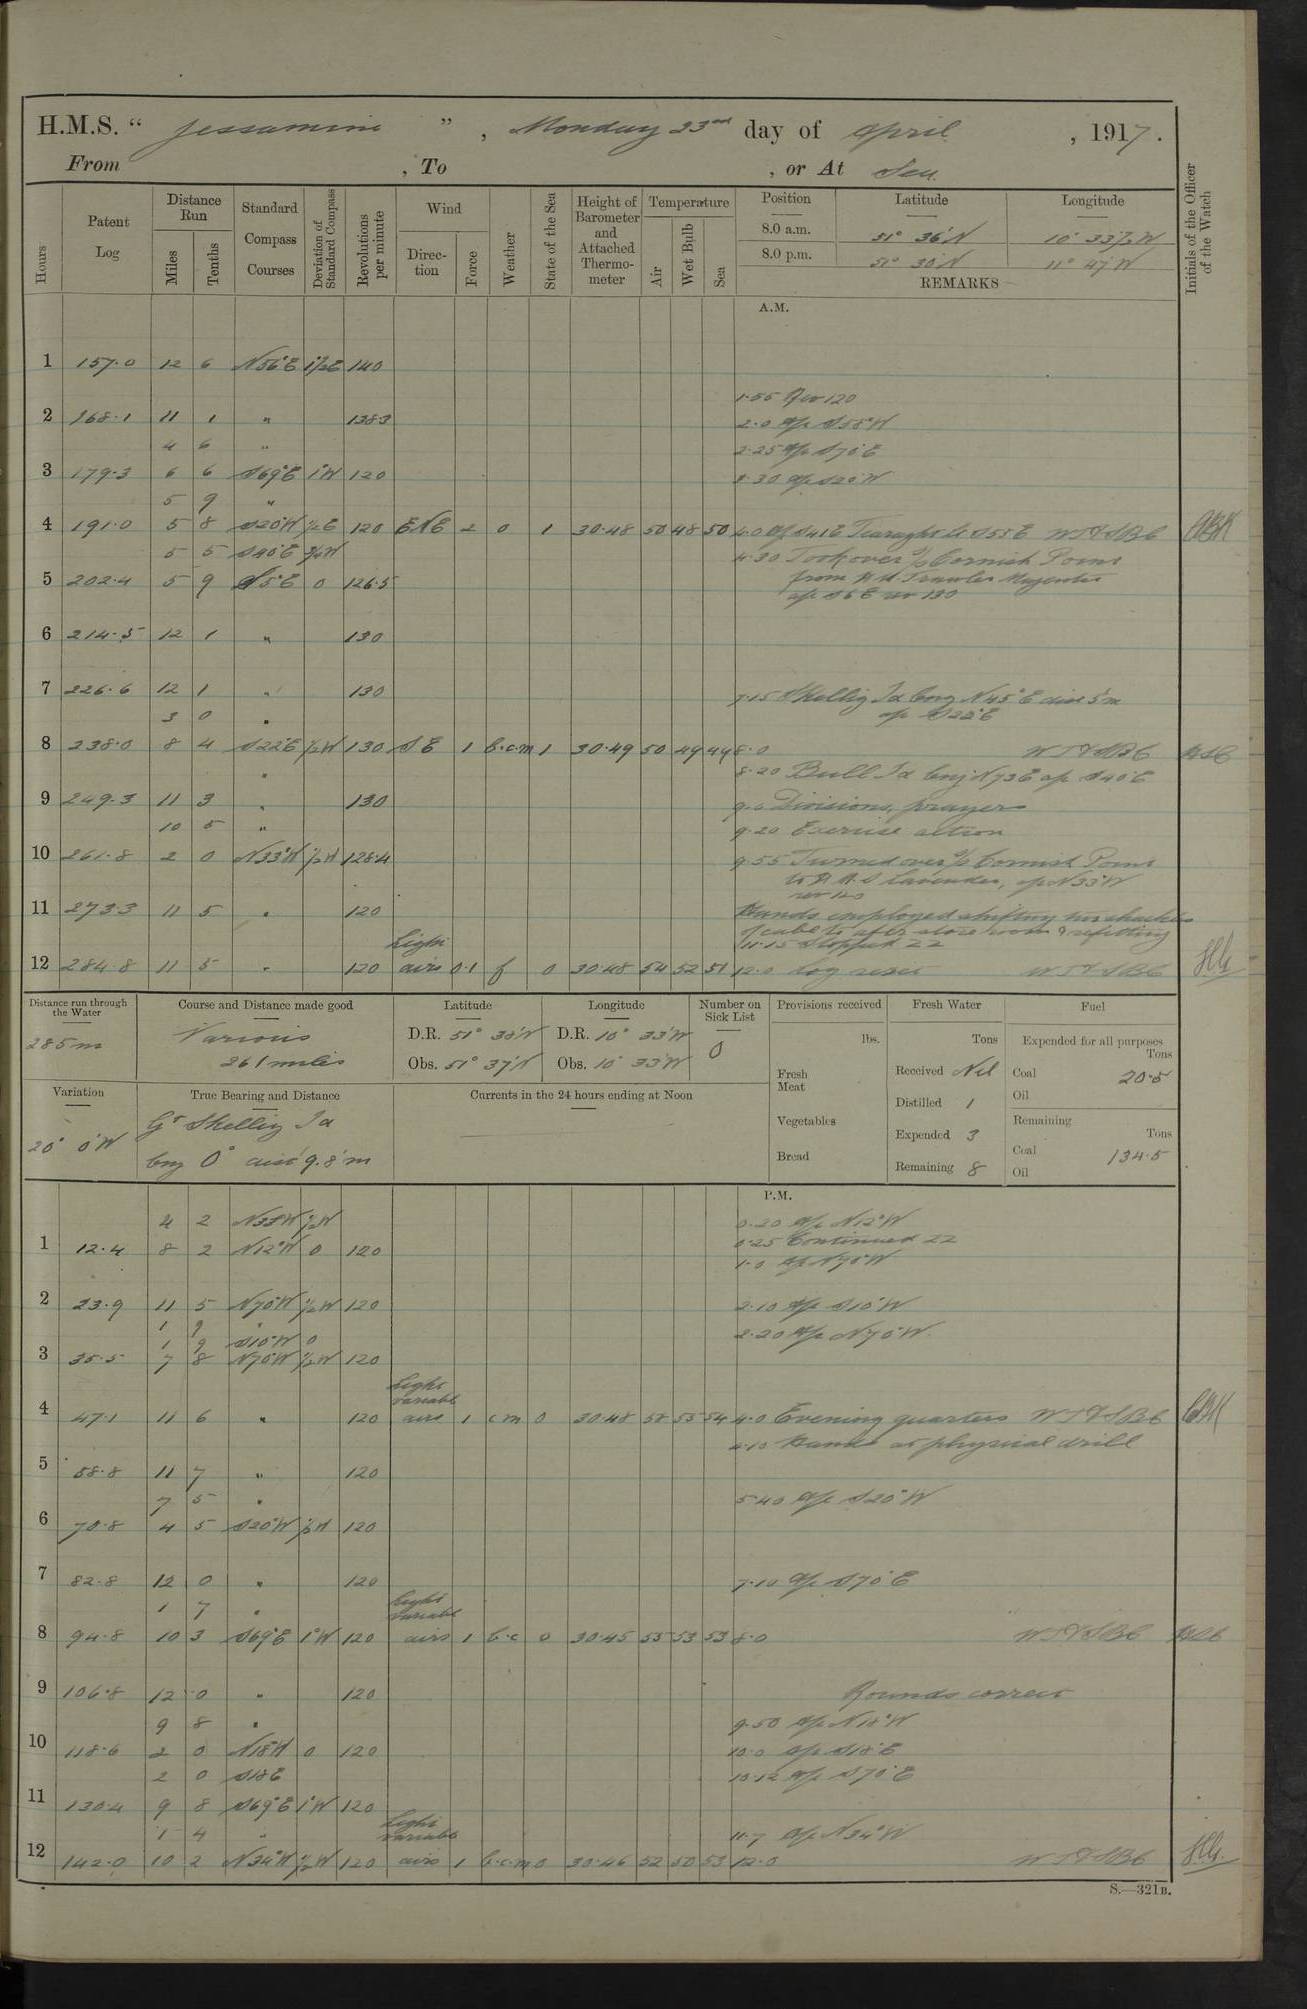 H.M.S. " Jessamine ", Monday 23rd day of April, 1917.
From , To , or At Sea
Hours
Patent Log
Distance Run
Miles
Tenths
Standard Compass Courses
Deviation of Standard Compass
Revolutions per minute
Wind
Direction
Force
Weather
State of the Sea
Height of Barometer and Attached Thermometer
Temperature
Air
Wet Bulb
Sea
Position
Latitude
Longitude
8.0 a.m. 51° 36'N 10° 33½'W
8.0 p.m. 51° 30'N 11° 47'W
REMARKS
Initials of the Officer of the Watch
A.M.
1 157.0 12 6 N56°E 1½E 140
1.55 Rev 120
2 168.1 11 1 " 138.3 2.0 a/c S55°W
4 6 " 2.25 a/c S70°E
3 179.3 6 6 S69°E 1°W 120 a/c S20°W
5 9 "
4 191.0 5 8 S20°W ½E 120 ENE 2 0 1 30.48 50 48 50 4.0 a/c S41E Tearaght Lt S55E WT&SBC
5 5 S40°E ¾W 4.30 Took over S/S Cornish Point
5 202.4 5 9 S5°E 0 126.5 from H.M. Trawler Magenta
a/c S6E rev 130
6 214.5 12 1 " 130
7 226.6 12 1 " 130 7.15 Skellig Id brng N45°E dist 5'm
3 0 " a/c S22°E
8 238.0 8 4 S22E ½W 130 SE 1 b.c.m 1 30.49 50 49 49 8.0 WT&SBC
" 8.20 Bull Id brng N73E a/c S40°E
9 249.3 11 3 " 130 9.0 Divisions, prayers
10 5 " 9.20 Exercise action
10 261.8 2 0 N33°W ½W 128.4 9.55 Turned over S/S Cornish Point
to H.M.S Lavender, a/c N33°W
rev 120
11 273.3 11 5 " 120 Hands employed shifting two shackles
of cable to after store room & refitting
Light 11.15 Stopped ZZ
12 284.8 11 5 " 120 airs 0.1 f 0 30.48 54 52 51 12.0 Log reset WT&SBC
Distance run through the Water
285 m
Course and Distance made good
Various
261 miles
Latitude
D.R. 51° 38'N
Obs. 51° 37'N
Longitude
D.R. 10° 33'W
Obs. 10° 33'W
Number on Sick List
0
Provisions received
lbs.
Fresh Meat
Vegetables
Bread
Fresh Water
Tons
Received Nil
Distilled 1
Expended 3
Remaining 8
Fuel
Expended for all purposes
Tons
Coal 20.5
Oil
Remaining
Tons
Coal 134.5
Oil
Variation
20° 0'W
True Bearing and Distance
Gt Skellig Id
brng 0° dist 9.8'm
Currents in the 24 hours ending at Noon
P.M.
4 2 N33°W ½W 0.20 a/c N12°W
1 12.4 8 2 N12°W 0 120 0.25 Continued ZZ
1.0 a/c N70°W
2 23.9 11 5 N70°W ½W 120 2.10 a/c S10°W
1 9 "
1 9 S10°W 0 2.20 a/c N70°W
3 35.5 7 8 N70°W ½W 120
Light
variable
4 47.1 11 6 " 120 airs 1 c m 0 30.48 58 55 54 4.0 Evening quarters WT&SBC
4.10 Hands at physical drill
5 58.8 11 7 " 120
7 5 " 5.40 a/c S20°W
6 70.8 4 5 S20°W ½W 120
7 82.8 12 0 " 120 7.10 a/c S70°E
1 7 " Light
variable
8 94.8 10 3 S69°E 1°W 120 airs 1 b.c 0 30.45 55 53 53 8.0 WT&SBC
9 106.8 12 0 " 120 Rounds correct
9 8 " 9.50 a/c N18°W
10 118.6 2 0 N18°W 0 120 10.0 a/c S18°E
2 0 S18E 10.12 a/c S70°E
11 130.4 9 8 S69°E 1°W 120
1 4 " Light
variable 11.7 a/c N34°W
12 142.0 10 2 N34°W ½W 120 airs 1 b.c.m 0 30.46 52 50 53 12.0 WT&SBC
S.—321B.